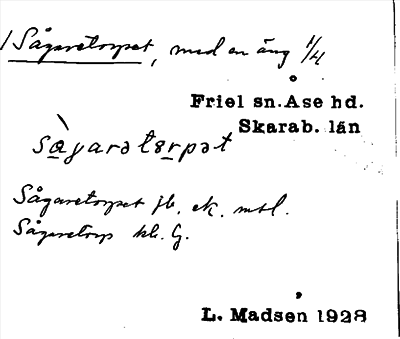 Sågaretorpet, med en äng 1/4
Friel sn. Åse hd.
Skarab. län
sàgarətɜrpət
Sågaretorpet jb, ek, mtl.
Sågaretorp kb. G.
L. Madsen 1928